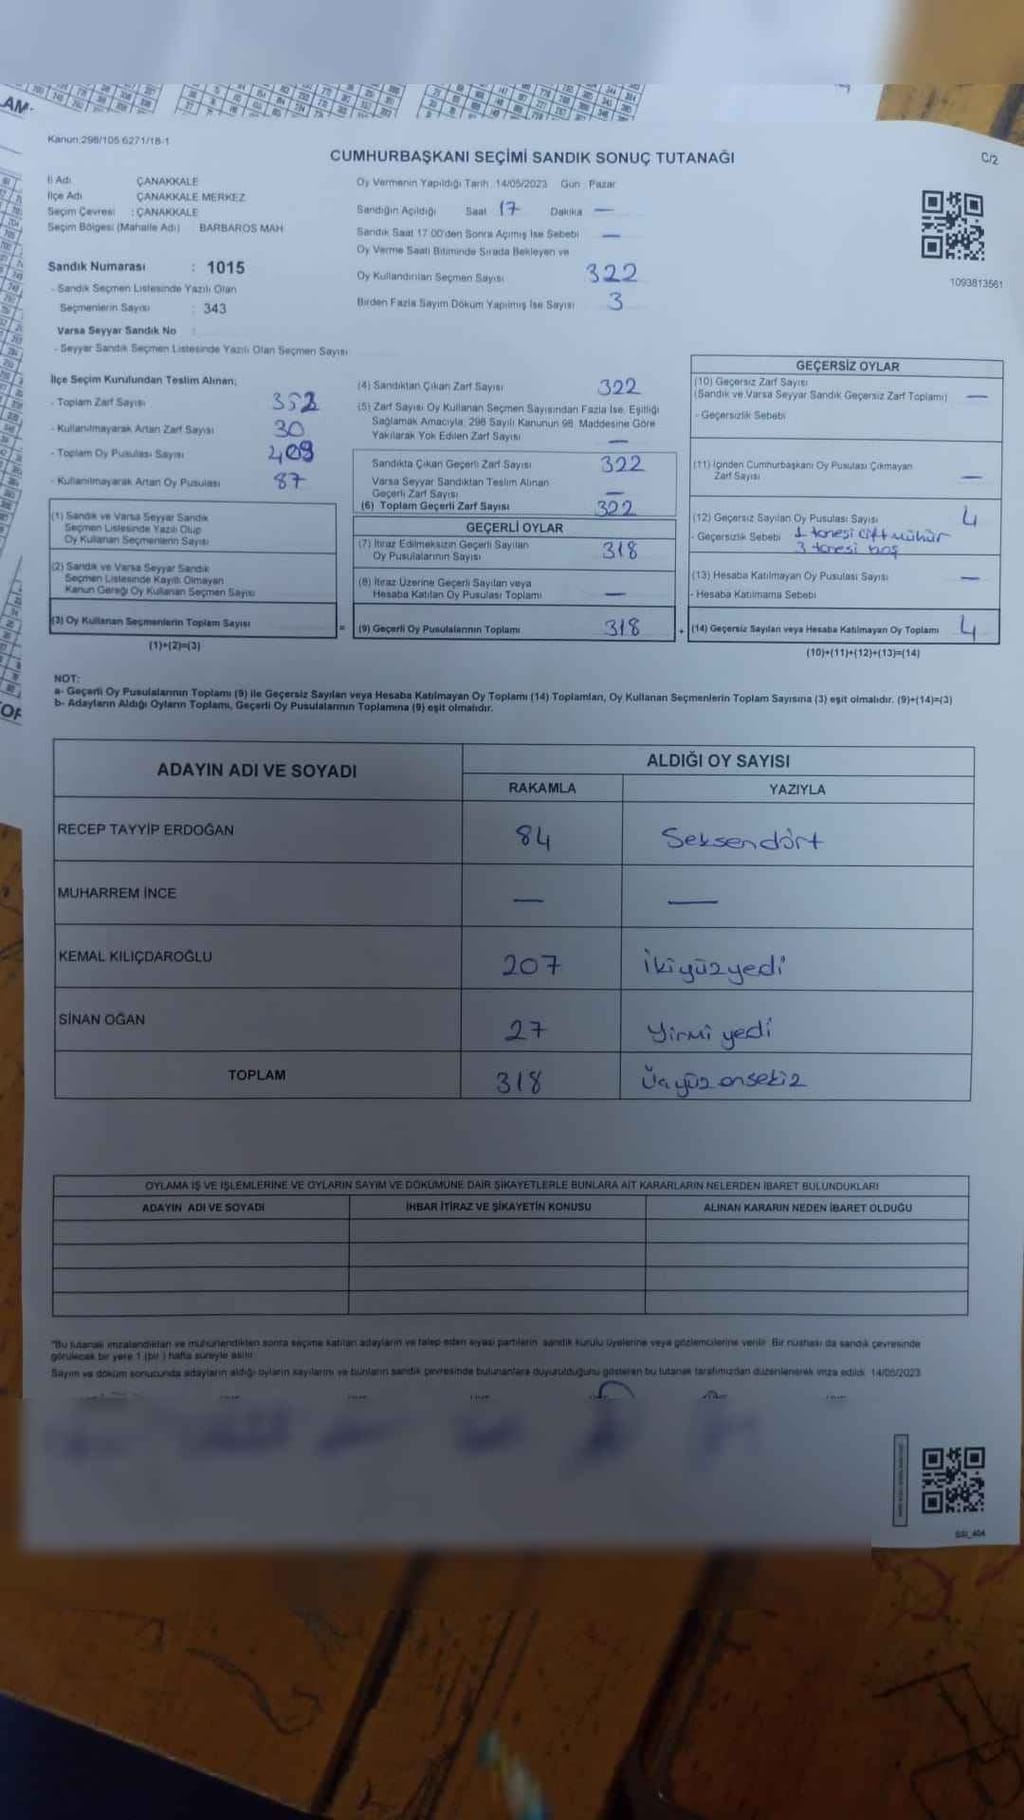 AM-
Kanun:298/105 6271/18-1
CUMHURBAŞKANI SEÇİMİ SANDIK SONUÇ TUTANAĞI
C/2
İl Adı ÇANAKKALE
İlçe Adı ÇANAKKALE MERKEZ
Seçim Çevresi : ÇANAKKALE
Seçim Bölgesi (Mahalle Adı) BARBAROS MAH
Sandık Numarası : 1015
- Sandık Seçmen Listesinde Yazılı Olan
Seçmenlerin Sayısı : 343
Varsa Seyyar Sandık No
- Seyyar Sandık Seçmen Listesinde Yazılı Olan Seçmen Sayısı
Oy Vermenin Yapıldığı Tarih: 14/05/2023 Gün : Pazar
Sandığın Açıldığı Saat 17 Dakika —
Sandık Saat 17:00'den Sonra Açımış İse Sebebi —
Oy Verme Saati Bitiminde Sırada Bekleyen ve
Oy Kullandırılan Seçmen Sayısı 322
Birden Fazla Sayım Döküm Yapılmış İse Sayısı 3
1093813561
İlçe Seçim Kurulundan Teslim Alınan;
- Toplam Zarf Sayısı 352
- Kullanılmayarak Artan Zarf Sayısı 30
- Toplam Oy Pusulası Sayısı 409
- Kullanılmayarak Artan Oy Pusulası 87
(1) Sandık ve Varsa Seyyar Sandık
Seçmen Listesinde Yazılı Olup
Oy Kullanan Seçmenlerin Sayısı
(2) Sandık ve Varsa Seyyar Sandık
Seçmen Listesinde Kayıtlı Olmayan
Kanun Gereği Oy Kullanan Seçmen Sayısı
(3) Oy Kullanan Seçmenlerin Toplam Sayısı
(1)+(2)=(3)
(4) Sandıktan Çıkan Zarf Sayısı 322
(5) Zarf Sayısı Oy Kullanan Seçmen Sayısından Fazla İse, Eşitliği
Sağlamak Amacıyla; 298 Sayılı Kanunun 98. Maddesine Göre
Yakılarak Yok Edilen Zarf Sayısı —
Sandıkta Çıkan Geçerli Zarf Sayısı 322
Varsa Seyyar Sandıktan Teslim Alınan
Geçerli Zarf Sayısı —
(6) Toplam Geçerli Zarf Sayısı 322
GEÇERLİ OYLAR
(7) İtiraz Edilmeksizin Geçerli Sayılan
Oy Pusulalarının Sayısı 318
(8) İtiraz Üzerine Geçerli Sayılan veya
Hesaba Katılan Oy Pusulası Toplamı —
= (9) Geçerli Oy Pusulalarının Toplamı 318
GEÇERSİZ OYLAR
(10) Geçersiz Zarf Sayısı
(Sandık ve Varsa Seyyar Sandık Geçersiz Zarf Toplamı) —
- Geçersizlik Sebebi
(11) İçinden Cumhurbaşkanı Oy Pusulası Çıkmayan
Zarf Sayısı —
(12) Geçersiz Sayılan Oy Pusulası Sayısı 4
- Geçersizlik Sebebi 1 tanesi çift mühür
3 tanesi boş
(13) Hesaba Katılmayan Oy Pusulası Sayısı —
- Hesaba Katılmama Sebebi
+ (14) Geçersiz Sayılan veya Hesaba Katılmayan Oy Toplamı 4
(10)+(11)+(12)+(13)=(14)
NOT:
a- Geçerli Oy Pusulalarının Toplamı (9) ile Geçersiz Sayılan veya Hesaba Katılmayan Oy Toplamı (14) Toplamları, Oy Kullanan Seçmenlerin Toplam Sayısına (3) eşit olmalıdır. (9)+(14)=(3)
b- Adayların Aldığı Oyların Toplamı, Geçerli Oy Pusulalarının Toplamına (9) eşit olmalıdır.
ADAYIN ADI VE SOYADI
ALDIĞI OY SAYISI
RAKAMLA YAZIYLA
RECEP TAYYİP ERDOĞAN 84 Seksendört
MUHARREM İNCE — —
KEMAL KILIÇDAROĞLU 207 İkiyüzyedi
SİNAN OĞAN 27 Yirmi yedi
TOPLAM 318 Üçyüz onsekiz
OYLAMA İŞ VE İŞLEMLERİNE VE OYLARIN SAYIM VE DÖKÜMÜNE DAİR ŞİKAYETLERLE BUNLARA AİT KARARLARIN NELERDEN İBARET BULUNDUKLARI
ADAYIN ADI VE SOYADI İHBAR İTİRAZ VE ŞİKAYETİN KONUSU ALINAN KARARIN NEDEN İBARET OLDUĞU
*Bu tutanak imzalandıktan ve mühürlendikten sonra seçime katılan adayların ve talep eden siyasi partilerin sandık kurulu üyelerine veya gözlemcilerine verilir. Bir nüshası da sandık çevresinde
görülecek bir yere 1 (bir) hafta süreyle asılır.
Sayım ve döküm sonucunda adayların aldığı oyların sayılarını ve bunların sandık çevresinde bulunanlara duyurulduğunu gösteren bu tutanak tarafımızdan düzenlenerek imza edildi. 14/05/2023
SSI_404